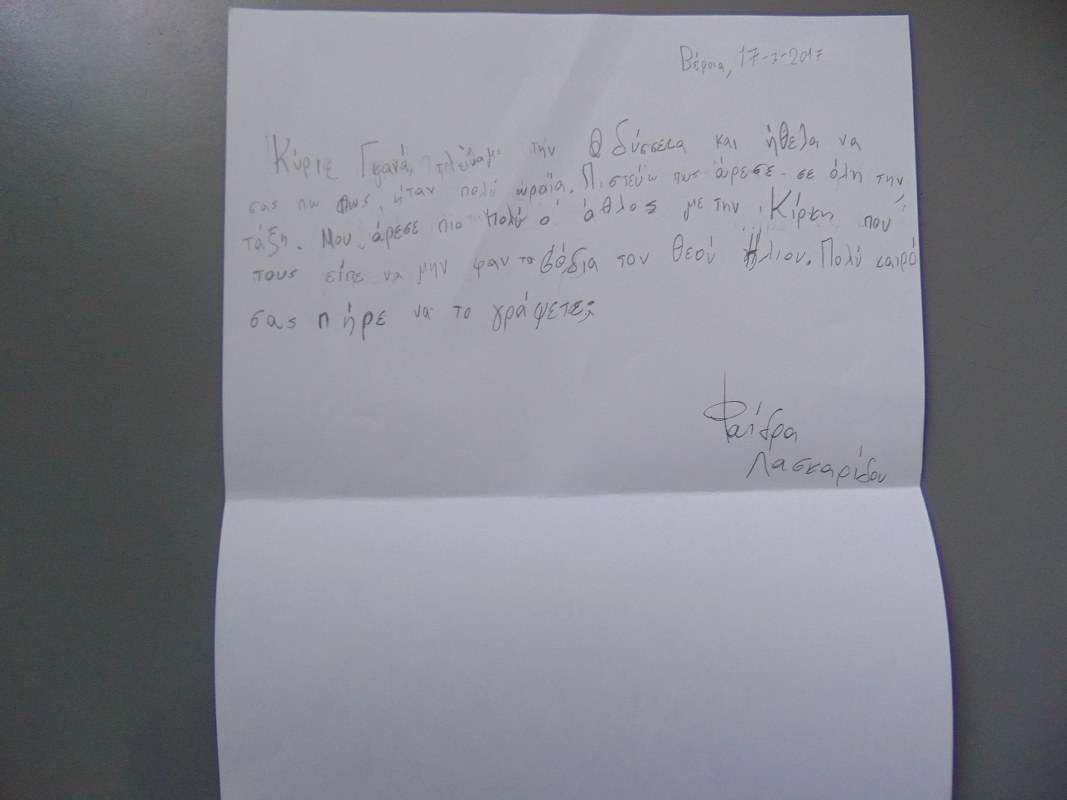 Βέροια, 17-3-2017
Κύριε Γκανά, την Οδύσσεια και ήθελα να
σας πω πως, ήταν πολύ ωραία. Πιστεύω πως άρεσε σε όλη την
τάξη. Μου άρεσε πιο πολύ ο άθλος με την Κίρκη που
τους είπε να μην φαν το βόδια του θεού Ήλιου. Πολύ καιρό
σας πήρε να το γράψετε;
Φαίδρα
Λασκαρίδου